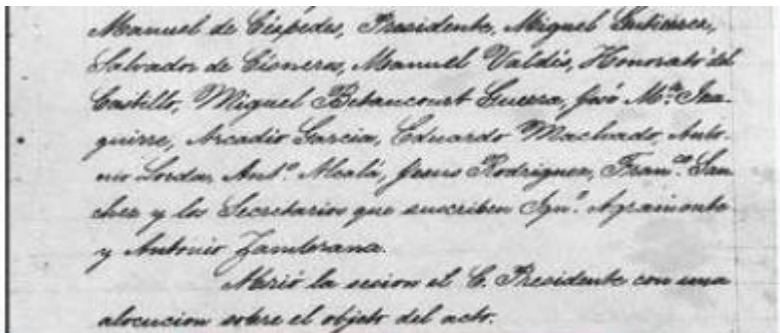 Manuel de Céspedes, Presidente, Miguel Gutierrez,
Salvador de Cisneros, Manuel Valdés, Honorato del
Castillo, Miguel Betancourt Guerra, José Mª. Iza-
guirre, Arcadio Garcia, Eduardo Machado, Anto-
nio Lorda, Antº. Alcalá, Jesus Rodriguez, Franco. San
chez y los Secretarios que suscriben Ignº. Agramonte
y Antonio Zambrana.
Abrió la secion el C. Presidente con una
alocucion sobre el objeto del acto.